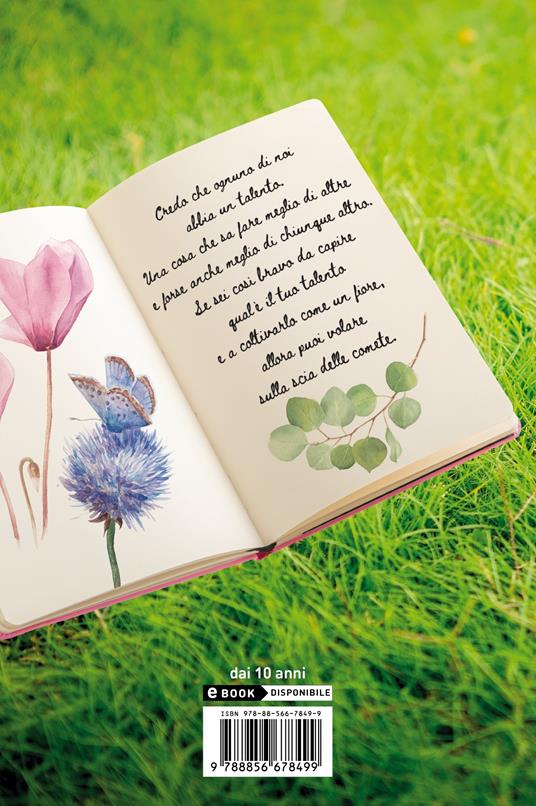 Credo che ognuno di noi
abbia un talento.
Una cosa che sa fare meglio di altre
e forse anche meglio di chiunque altro.
Se sei così bravo da capire
qual'è il tuo talento
e a coltivarlo come un fiore,
allora puoi volare
sulla scia delle comete.
dai 10 anni
e BOOK DISPONIBILE
ISBN 978-88-566-7849-9
9 788856 678499